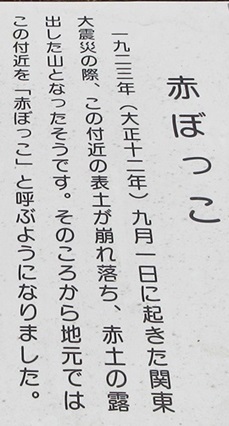 赤ぼっこ
一九二三年(大正十二年)九月一日に起きた関東
大震災の際、この付近の表土が崩れ落ち、赤土の露
出した山となったそうです。そのころから地元では
この付近を「赤ぼっこ」と呼ぶようになりました。